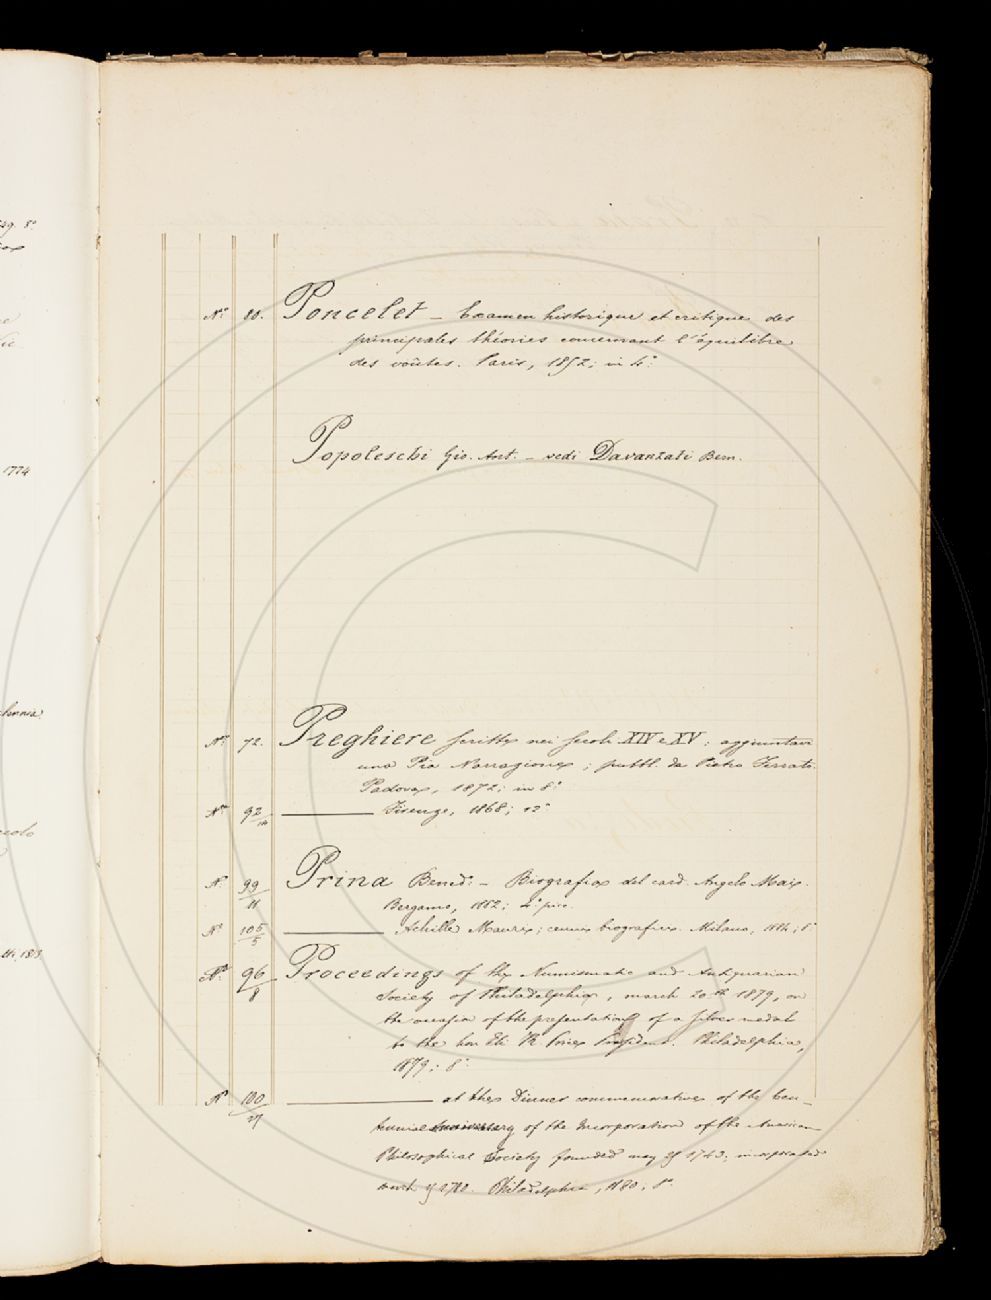 ag. 8°
1774
colo
1813
N.° 80. Poncelet – Examen historique et critique des
principales théories concernant l'équilibre
des voûtes. Paris, 1852; in 4.°
Popoleschi Gio. Ant. – vedi Davanzati Bern.
N.° 72. Preghiere scritte nei secoli XIV e XV; aggiuntavi
una Pia Narrazione; pubbl. da Pietro Ferrato.
Padova, 1872; in 8.°
N.° 92/ ——— Firenze, 1868; 12°
N. 99/11 Prina Bened.° – Biografia del card. Angelo Mai.
Bergamo, 1882; 4.° picc.
N.° 105/5 ——— Achille Mauri; cenni biografici. Milano, 1884; 8°
N.° 96/8 Proceedings of the Numismatic and Antiquarian
Society of Philadelphia, march 20th 1879, on
the occasion of the presentation of a silver medal
to the hon Eli K. Price President. Philadelphia,
1879; 8.°
N.° 100/27 ——— at the Dinner commemorative of the Cen-
tennial Anniversary of the Incorporation of the American
Philosophical Society founded may 25 1743; incorporated
march 15 1780. Philadelphia, 1880; 8.°